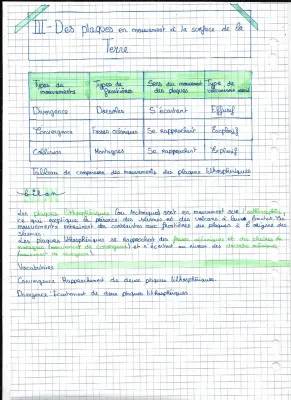 III - Des plaques en mouvement à la surface de la
Terre
Types de mouvements
Types de frontières
Sens du mouvement des plaques
Type de volcanisme
Divergence Dorsales S'écartent Effusif
Convergence Fosses océaniques Se rapprochent Explosif
Collision Montagnes Se rapprochent Explosif
Tableau de comparaison des mouvements des plaques lithosphériques
Bilan
Les plaques lithosphériques (ou tectoniques) sont en mouvement sur l'asthénosphère,
ce qui explique la présence des séismes et des volcans à leurs frontières. Ces
mouvements entraînent des contraintes aux frontières des plaques à l'origine des
séismes.
Les plaques lithosphériques se rapprochent des fosses océaniques et des chaînes de
montagnes (mouvement de convergence) et s'écartent au niveau des dorsales océaniques
(mouvement de divergence)
Vocabulaire
Convergence: Rapprochement de deux plaques lithosphériques.
Divergence: Ecartement de deux plaques lithosphériques.